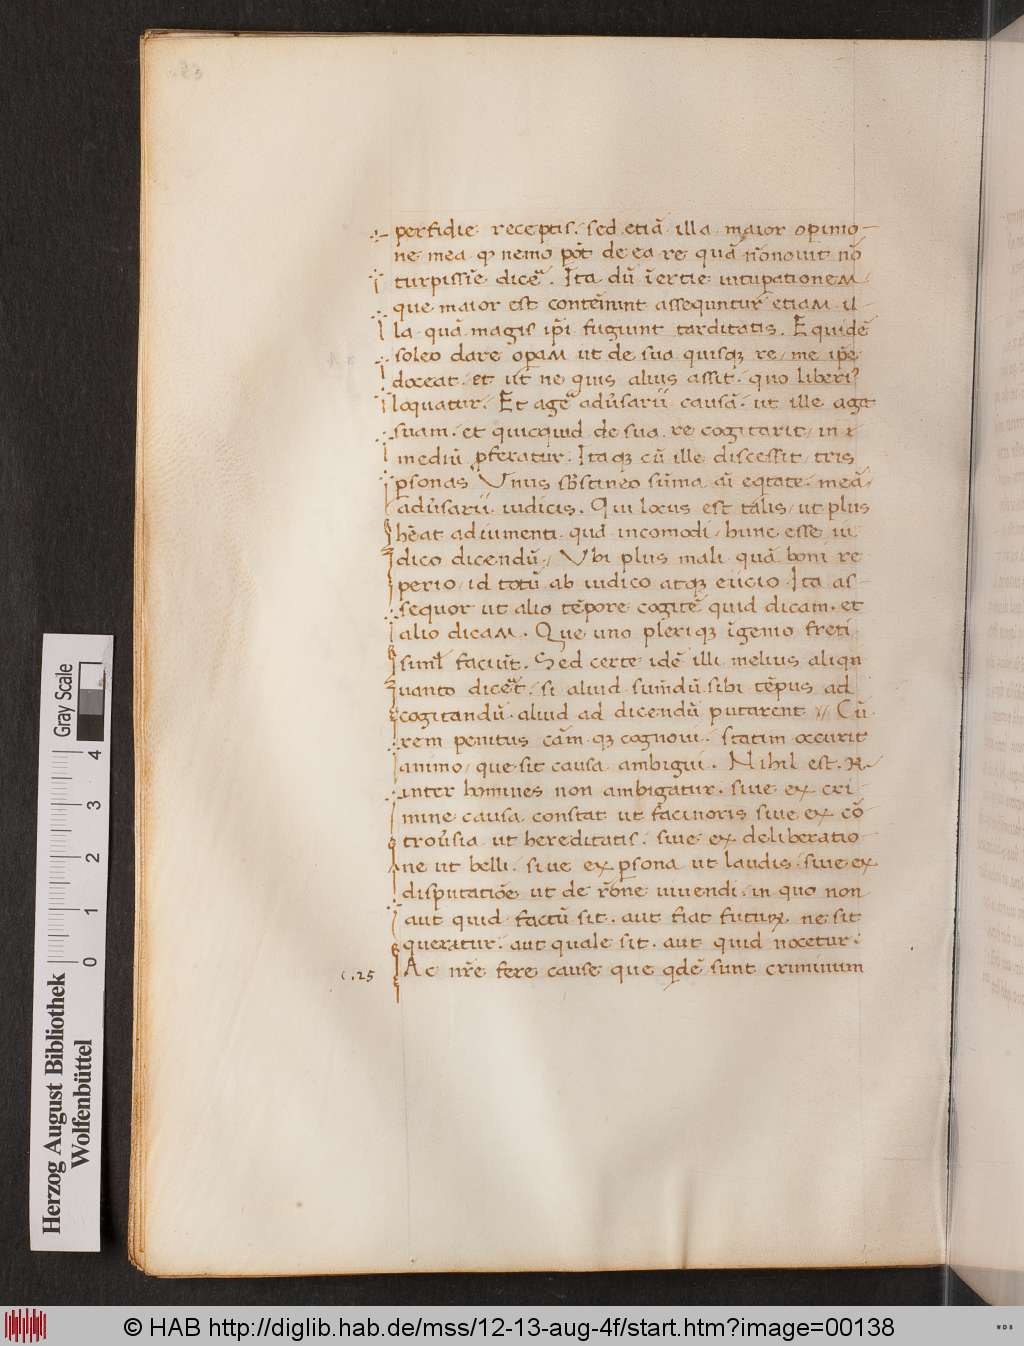 perfidie receptis. sed etiā illa maior opinio-
ne mea q nemo pōt de ea re quā nō nouit nō
turpissīe dicē. Ita dū īertie uitupationem
que maior est contēnunt assequntur etiam il-
la quā magis ipī fugiunt tarditatis. Equidē
soleo dare operam ut de sua quisq; re me ipē
doceat. et ut ne quis alius assit. quo liberi⁹
loquatur. Et agē adūsarii causā. ut ille agat
suam. et quicquid de sua re cogitarit in
mediū pferatur. Itaq; cū ille discessit tris
psonas Unus sustineo sūma aī eqtate. meā
adūsarii iudicis. Qui locus est talis ut plus
hēat adiumenti quā incomodi hunc esse iu
dico dicendū. Ubi plus mali quā boni re
perio id totū ab iudico atq; eiicio. Ita as-
sequor ut alio tēpore cogitē quid dicam. et
alio dicam. Que uno pleriq; īgenio freti
simul faciūt. Sed certe idē illi melius aliqn
uanto dicēt. si aliud sumēdū sibi tēpus ad
cogitandū. aliud ad dicendū putarent. Cū
rem penitus cām q; cognoui. statim occurit
animo que sit causa ambigui. Nihil est. N.
inter homines non ambigatur. siue ex cri
mine causa constat ut facinoris siue ex cō
troūsia ut hereditatis. siue ex deliberatio
ne ut belli. siue ex psona ut laudis siue ex
disputatiōe ut de rōne uiuendi. in quo non
aut quid factū sit. aut fiat futurꝝ ne sit
queratur. aut quale sit. aut quid uocetur.
c.25 Ac nrē fere cause que qdē sunt criminum
Herzog August Bibliothek
Wolfenbüttel
Gray Scale
0 1 2 3 4
© HAB http://diglib.hab.de/mss/12-13-aug-4f/start.htm?image=00138